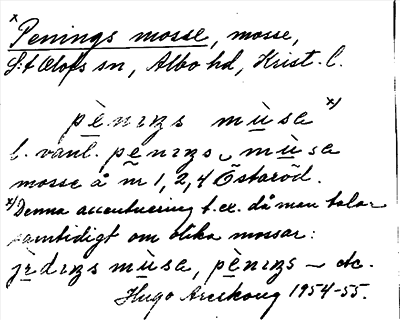 x
Penings mosse, mosse,
S:t Olofs sn, Albo hd, Krist. l.
pènɪŋs mùsa x)
l. vanl. penɪŋs ᴗ mùsa
mosse å nr 1, 2, 4 Östaröd.
x) Denna accentuering t. ex. då man talar
samtidigt om olika mossar:
jèdɪŋs mùsa, pènɪŋs ~ etc.
Hugo Areskoug 1954-55.